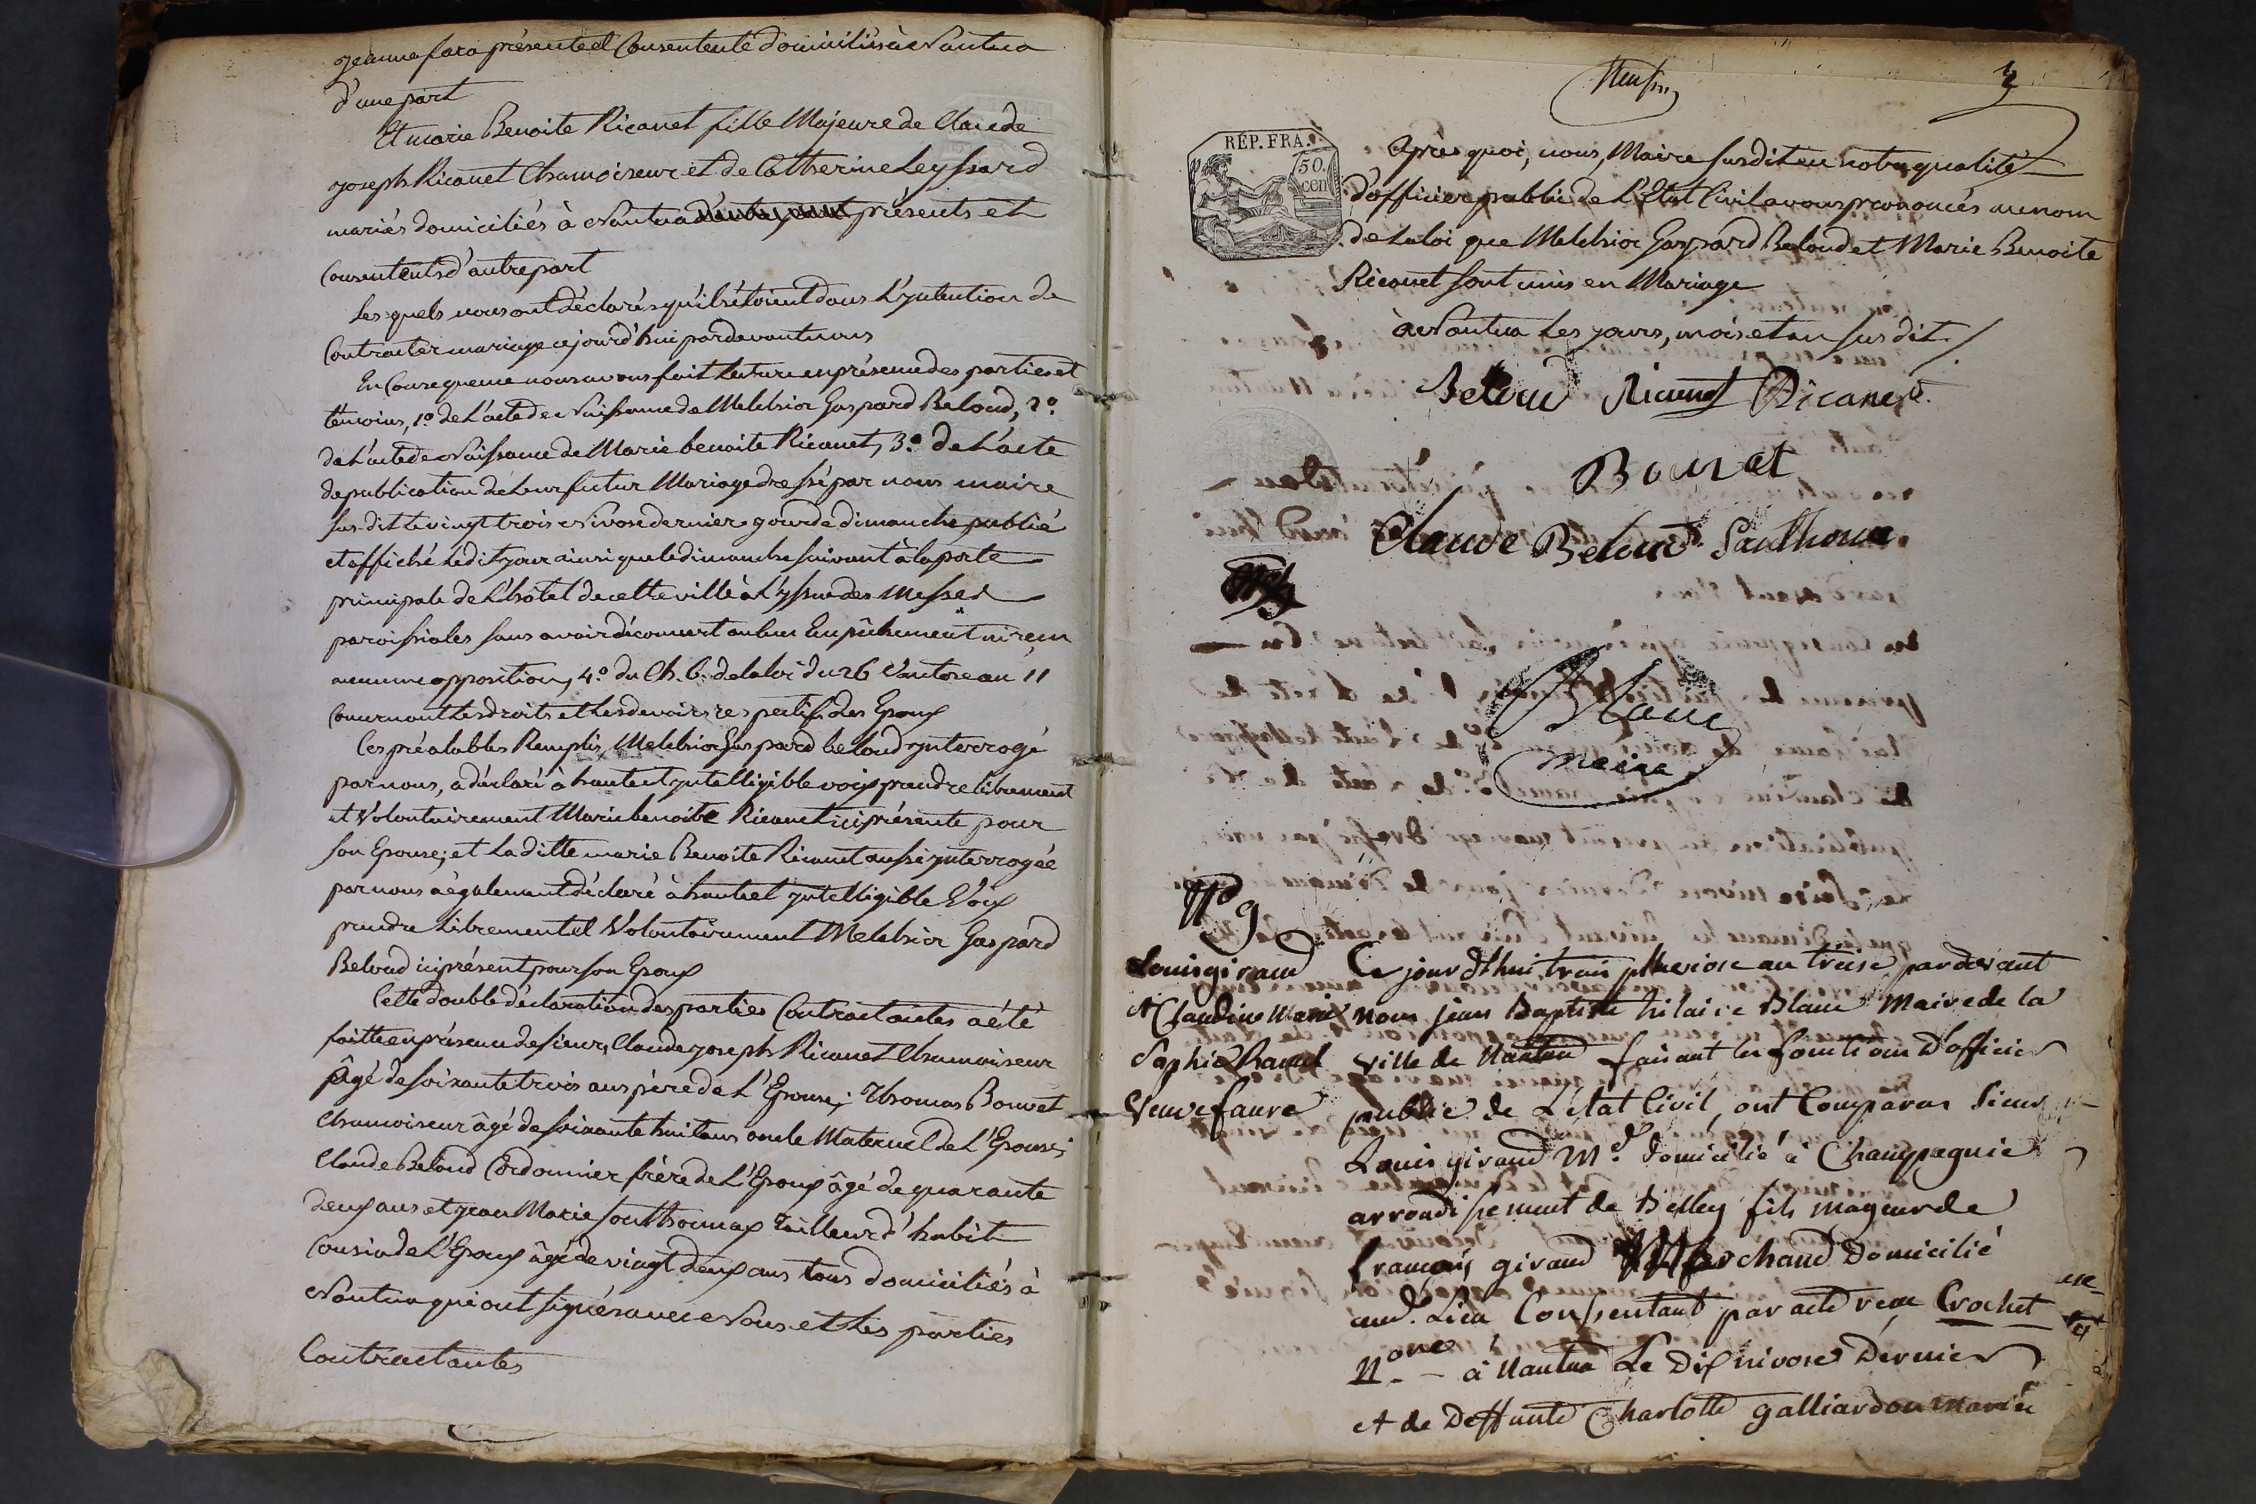 Jeanne fara présente et Consentente domiciliés à Nantua
d'une part
Et marie Benoite Ricanet fille Majeure de Claude
joseph Ricanet Chamoiseur et de Catherine Leyssard
mariés domiciliés à Nantua présents et
Consentents d'autre part
Les quels nous ont déclarés qu'ils étoient dans L'yntention de
Contracter mariage ce jourd'hui par devant nous
En Consequence nous avons fait Lecture en présence des parties et
temoins, 1º de L'acte de Naissance de Melchior Gaspard Beloud, 2º
de L'acte de Naissance de Marie benoite Ricanet, 3º de L'acte
de publication de Leur futur Mariage dressé par nous maire
sus-dit Le vingt trois Nivose dernier jour de dimanche, publié
et affiché Ledit jour ainsi que le dimanche suivant à la porte
principale de L'hôtel de cette ville à L'yssue des Messes
paroissiales sans avoir découvert aucun Empêchement ni reçu
aucune opposition, 4º du Ch. 6. de la loi du 26 Vantose an 11
Concernant Les droits et Les devoirs respectifs des Epoux
Ces préalables Remplis, Melchior Gaspard beloud ynterrogé
par nous, a déclaré à haute et yntelligible voix prendre librement
et Volontairement Marie benoite Ricanet ici présente pour
son Epouse; et La ditte marie Benoite Ricanet aussi ynterrogée
par nous a également déclaré à haute et yntelligible Voix
prendre Librement et Volontairement Melchior Gaspard
Beloud ici présent pour son Epoux
Cette double déclaration des parties Contractantes a été
faitte en présence de sieurs Claude joseph Ricanet Chamoiseur
âgé de soixante trois ans père de L'Epouse; Thomas Bouvet
Chamoiseur âgé de soixante huit ans oncle Maternel de L'Epouse;
Claude Beloud Cordonnier frère de L'Epoux âgé de quarante
deux ans et jean Marie Sonthonnax Tailleur d'habit
Cousin de L'Epoux âgé de vingt deux ans tous domiciliés à
Nantua qui ont signés avec Nous et Les parties
Contractantes
RÉP. FRA.
50.
cen
Après quoi, nous, Maire susdit en notre qualité
d'officier public de L'Etat Civil avons prononcés au nom
de La loi que Melchior Gaspard Beloud et Marie Benoite
Ricanet sont unis en Mariage
à Nantua Les jours, mois et an susdit
Beloud Ricanet Ricanet
Bouvet
Claude Beloud Sonthonnax
Blanc
maire
Nº 9
Louis giraud
et Claudine Marie
Sophie
Veuve faure
Ce jourd'hui trois pluviose an treise par devant
nous jean Baptiste hilaire Blanc Maire de la
ville de Nantua faisant les fonctions d'officier
public de L'état Civil, ont Comparus Sieur
Louis giraud Md. domicilié à Champagnie
arrondissement de Belley fils mageur de
francois giraud Marchand Domicilié
aud. Lieu Consentant par acte reçu Crochet
Nore à Nantua Le Dix nivose Dernier
et de Deffunte Charlotte galliardon Mariés